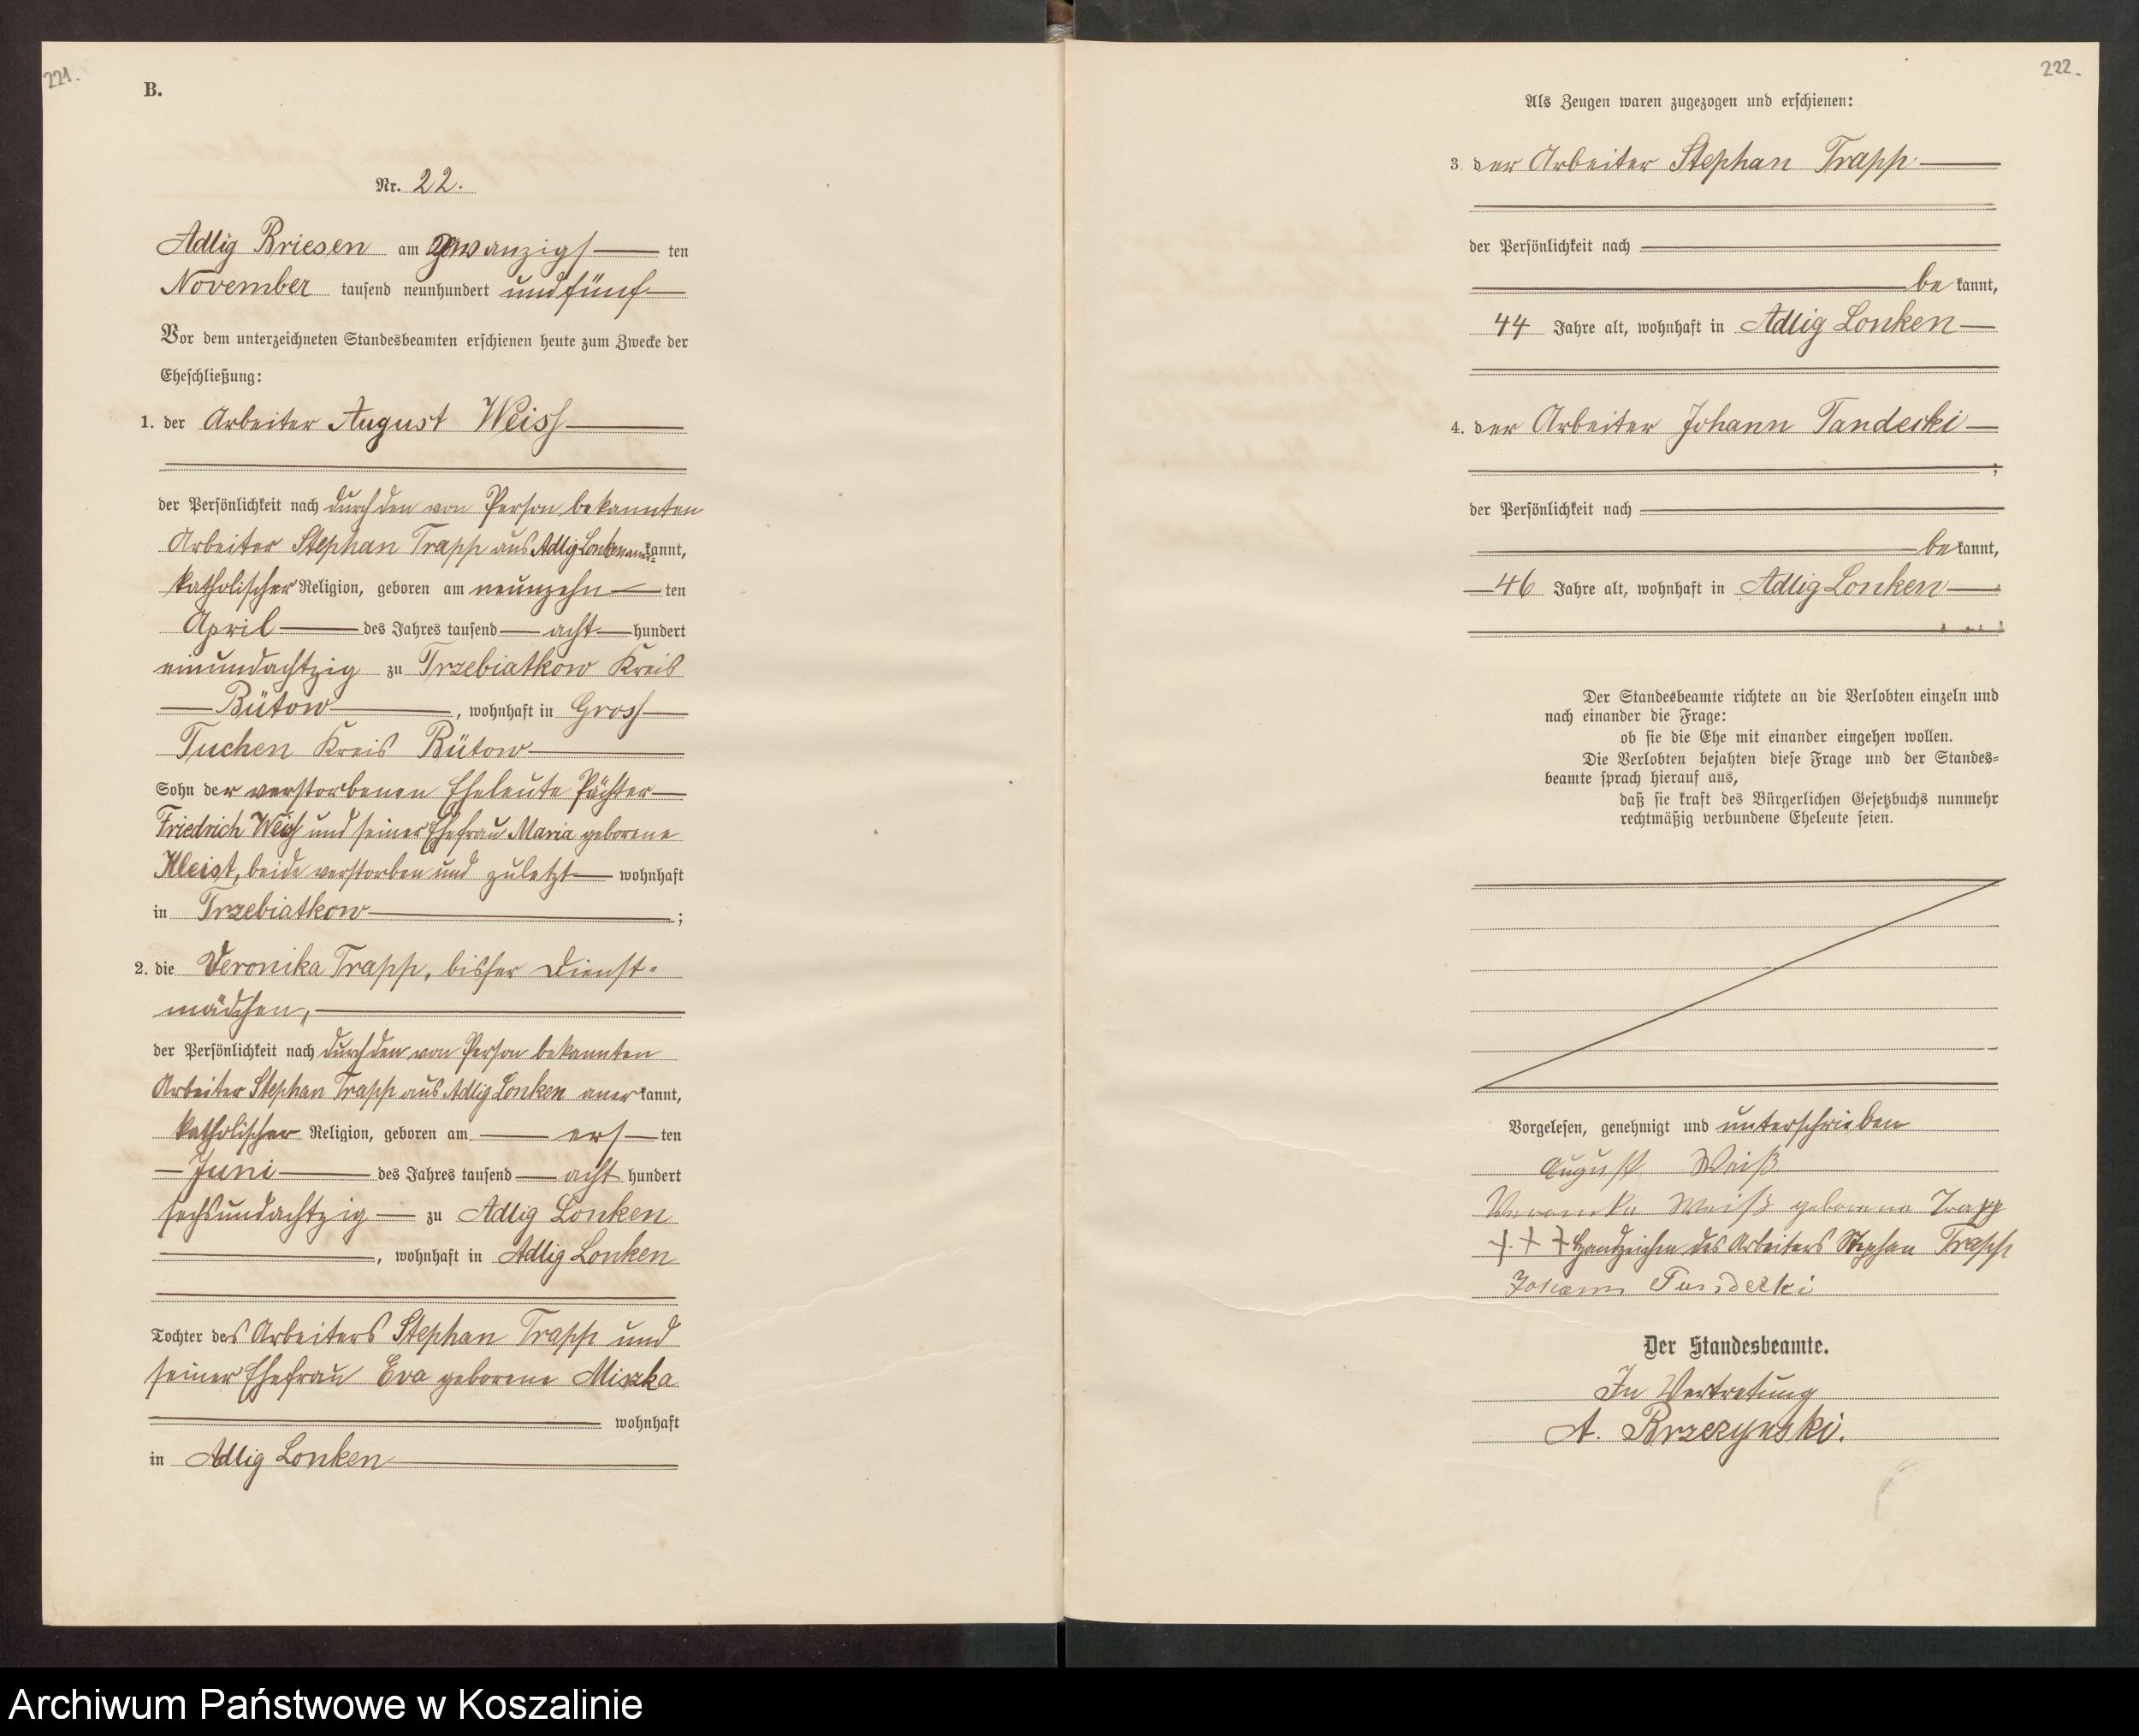 221.
B.
Nr. 22.
Adlig Briesen am zwanzigs ten
November tausend neunhundert und fünf
Vor dem unterzeichneten Standesbeamten erschienen heute zum Zwecke der
Eheschließung:
1. der Arbeiter August Weiss
der Persönlichkeit nach durch den von Person bekannten
Arbeiter Stephan Trapp aus Adlig Lonken aner= kannt,
katholischer Religion, geboren am neunzehn ten
April des Jahres tausend acht hundert
einundachtzig zu Trzebiatkow Kreis
Bütow, wohnhaft in Gross
Tuchen Kreis Bütow
Sohn der verstorbenen Eheleute Pächter
Friedrich Weiss und seiner Ehefrau Maria geborene
Kleist, beide verstorben und zuletzt wohnhaft
in Trzebiatkow;
2. die Veronika Trapp, bisher Dienst=
mädchen,
der Persönlichkeit nach durch den von Person bekannten
Arbeiter Stephan Trapp aus Adlig Lonken aner kannt,
katholischer Religion, geboren am ers ten
Juni des Jahres tausend acht hundert
sechsundachtzig zu Adlig Lonken
, wohnhaft in Adlig Lonken
Tochter des Arbeiters Stephan Trapp und
seiner Ehefrau Eva geborene Miszka
wohnhaft
in Adlig Lonken
222.
Als Zeugen waren zugezogen und erschienen:
3. der Arbeiter Stephan Trapp
der Persönlichkeit nach
be kannt,
44 Jahre alt, wohnhaft in Adlig Lonken
4. der Arbeiter Johann Tandecki
;
der Persönlichkeit nach
be kannt,
46 Jahre alt, wohnhaft in Adlig Lonken
Der Standesbeamte richtete an die Verlobten einzeln und
nach einander die Frage:
ob sie die Ehe mit einander eingehen wollen.
Die Verlobten bejahten diese Frage und der Standes=
beamte sprach hierauf aus,
daß sie kraft des Bürgerlichen Gesetzbuchs nunmehr
rechtmäßig verbundene Eheleute seien.
Vorgelesen, genehmigt und unterschrieben
August Weiß
Veronika Weiß geborene Trapp
+ + + Handzeichen des Arbeiters Stephan Trapp
Johann Tandecki
Der Standesbeamte.
In Vertretung
A. Brzezynski.
Archiwum Państwowe w Koszalinie